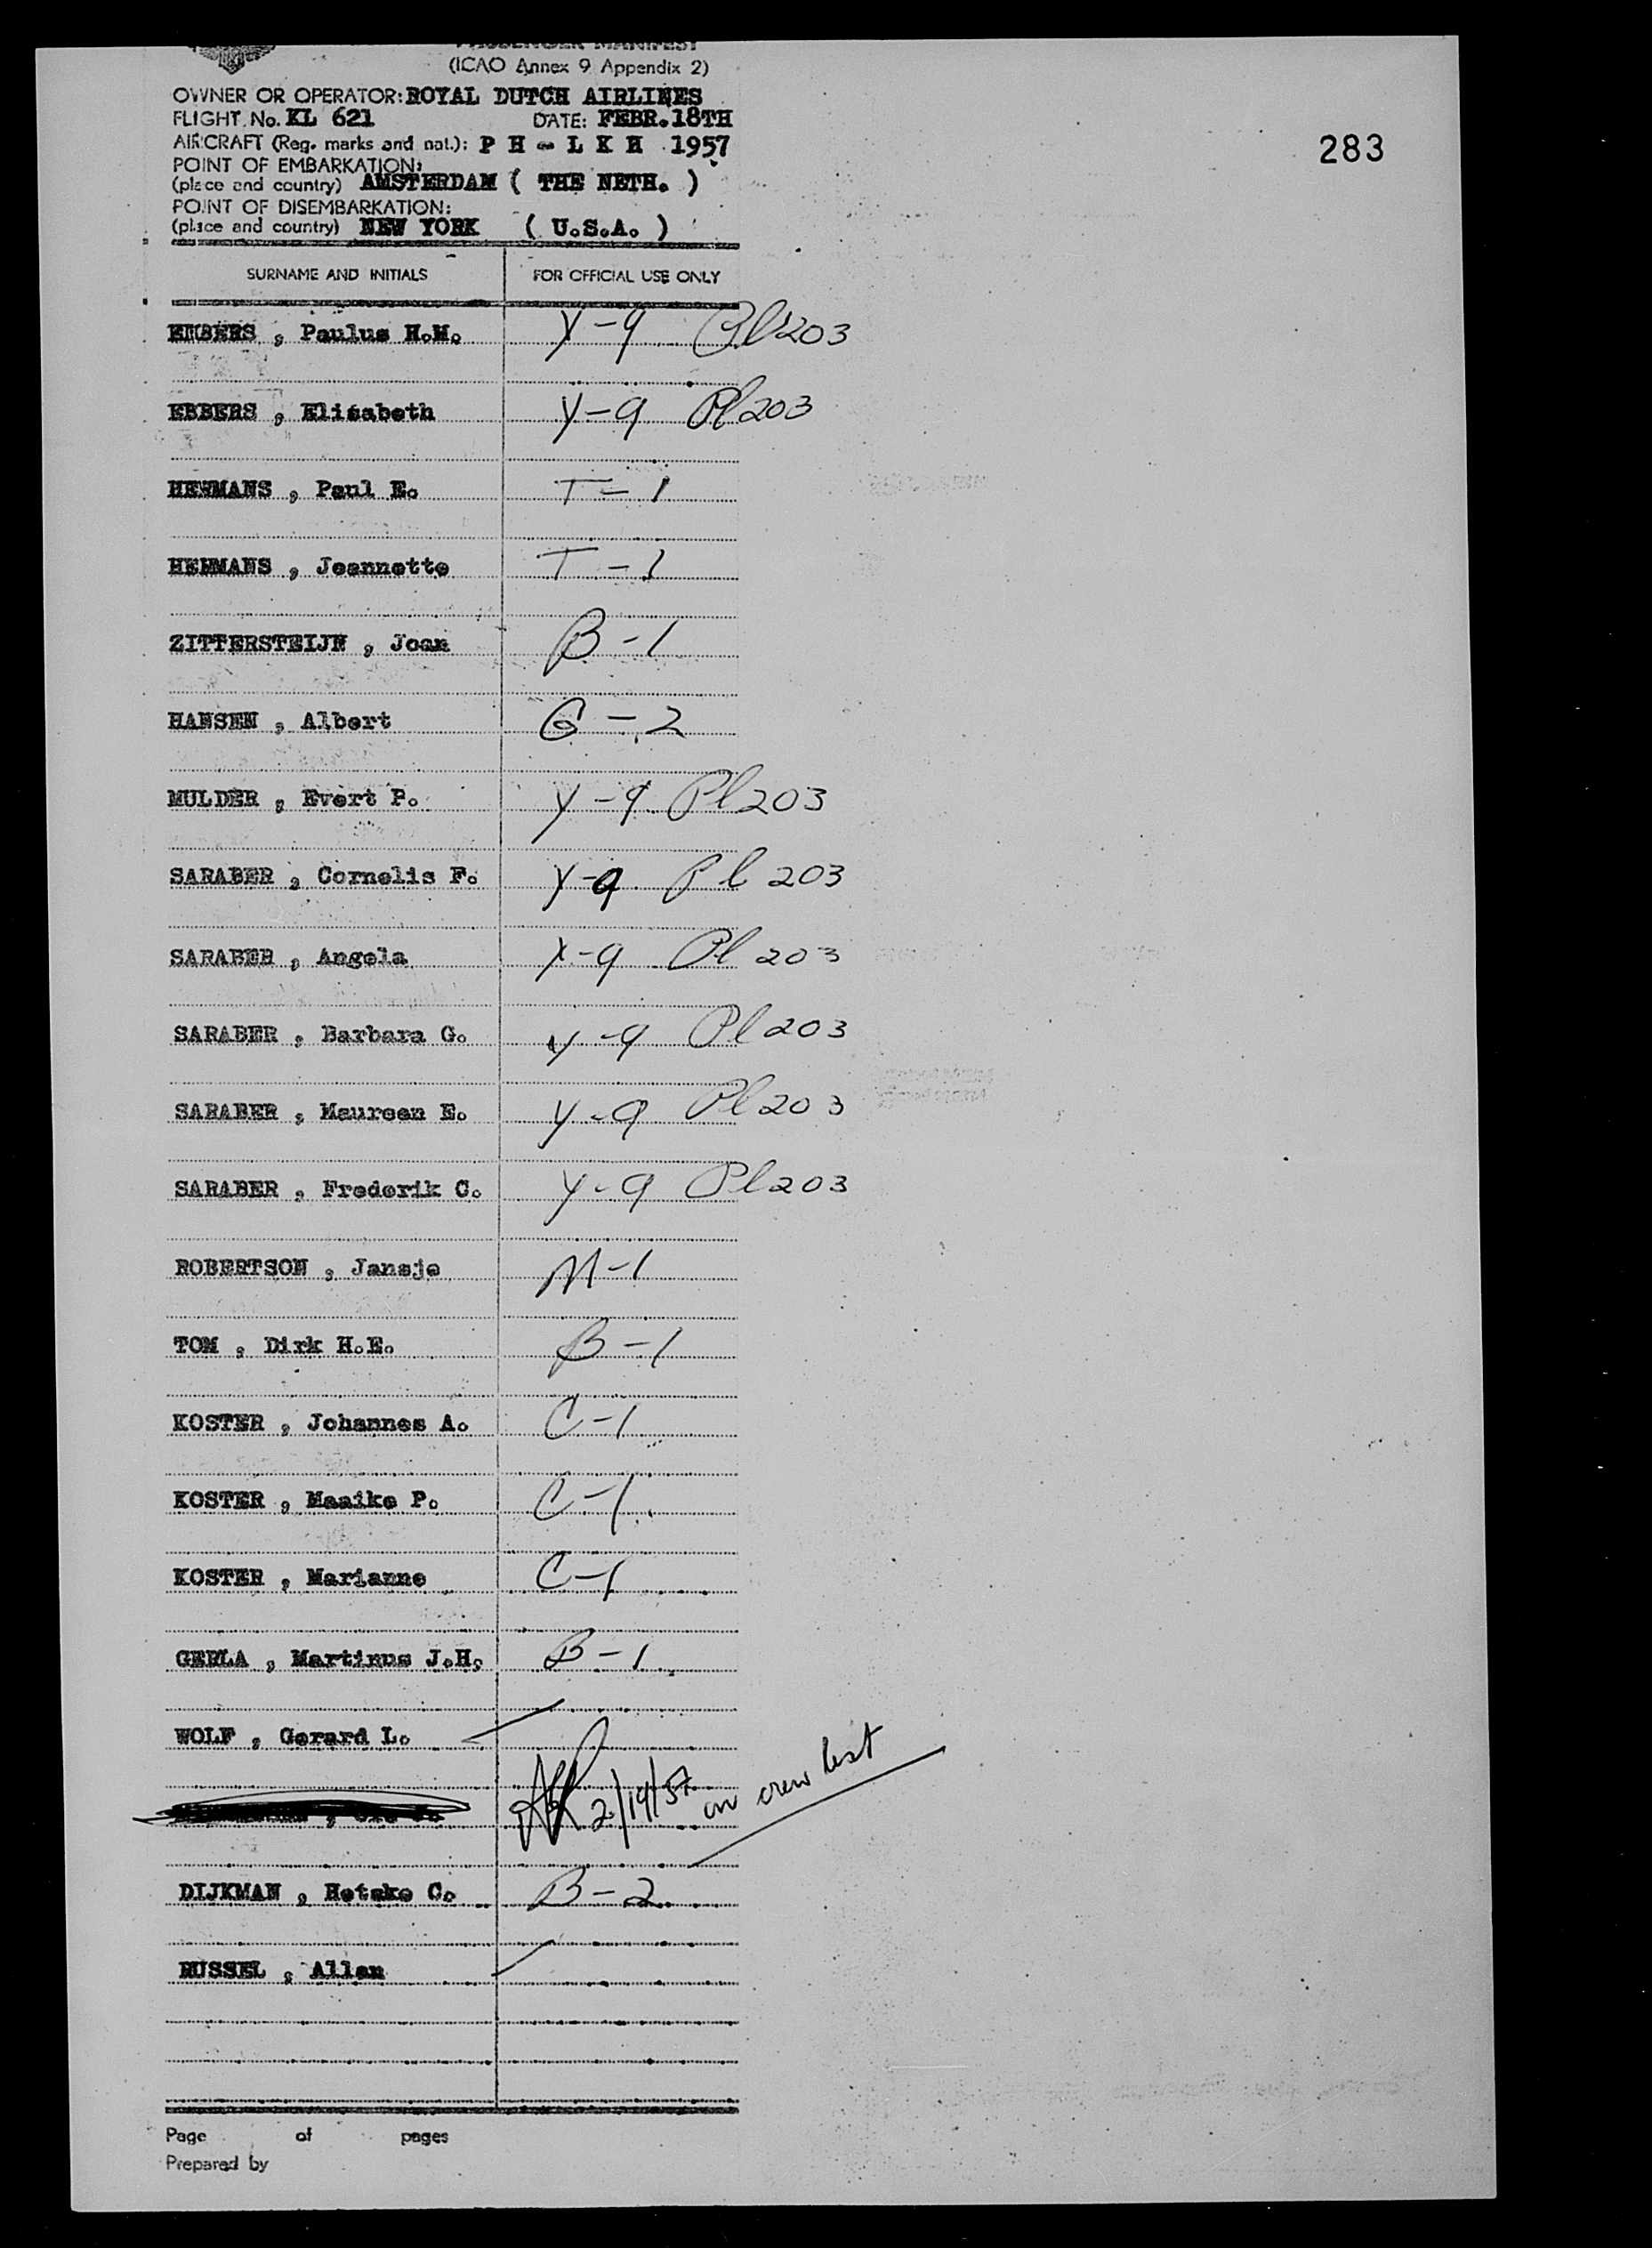 PASSENGER MANIFEST
(ICAO Annex 9 Appendix 2)
OWNER OR OPERATOR: ROYAL DUTCH AIRLINES
FLIGHT No. KL 621 DATE: FEBR. 18TH
AIRCRAFT (Reg. marks and nat.): P H - L K H 1957
283
POINT OF EMBARKATION:
(place and country) AMSTERDAM ( THE NETH. )
POINT OF DISEMBARKATION:
(place and country) NEW YORK ( U.S.A. )
SURNAME AND INITIALS FOR OFFICIAL USE ONLY
EBBERS , Paulus H.M. Y-9 Pl 203
EBBERS , Elisabeth Y-9 Pl 203
HERMANS , Paul E. T-1
HERMANS , Jeannette T-1
ZITTERSTEIJN , Joan B-1
HANSEN , Albert G-2
MULDER , Evert P. Y-9 Pl 203
SARABER , Cornelis F. Y-9 Pl 203
SARABER , Angela Y-9 Pl 203
SARABER , Barbara G. Y-9 Pl 203
SARABER , Maureen E. Y-9 Pl 203
SARABER , Frederik C. Y-9 Pl 203
ROBERTSON , Jansje M-1
TOM , Dirk H.E. B-1
KOSTER , Johannes A. C-1
KOSTER , Maaike P. C-1
KOSTER , Marianne C-1
GERLA , Martinus J.H. B-1
WOLF , Gerard L.
2/19/57 on crew list
DIJKMAN , Hetske C. B-2
RUSSEL , Allan
Page of pages
Prepared by